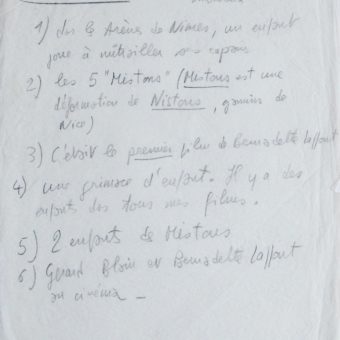 1) ds les Arènes de Nimes, un enfant
joue à mitrailler ses copains
2) les 5 "Mistons" (Mistons est une
déformation de Nistons, gamins de
Nice)
3) C'était le premier film de Bernadette Laffont
4) une grimace d'enfant. Il y a des
enfants ds tous mes films.
5) 2 enfants des Mistons
6) Gérard Blain et Bernadette Laffont
au cinéma –